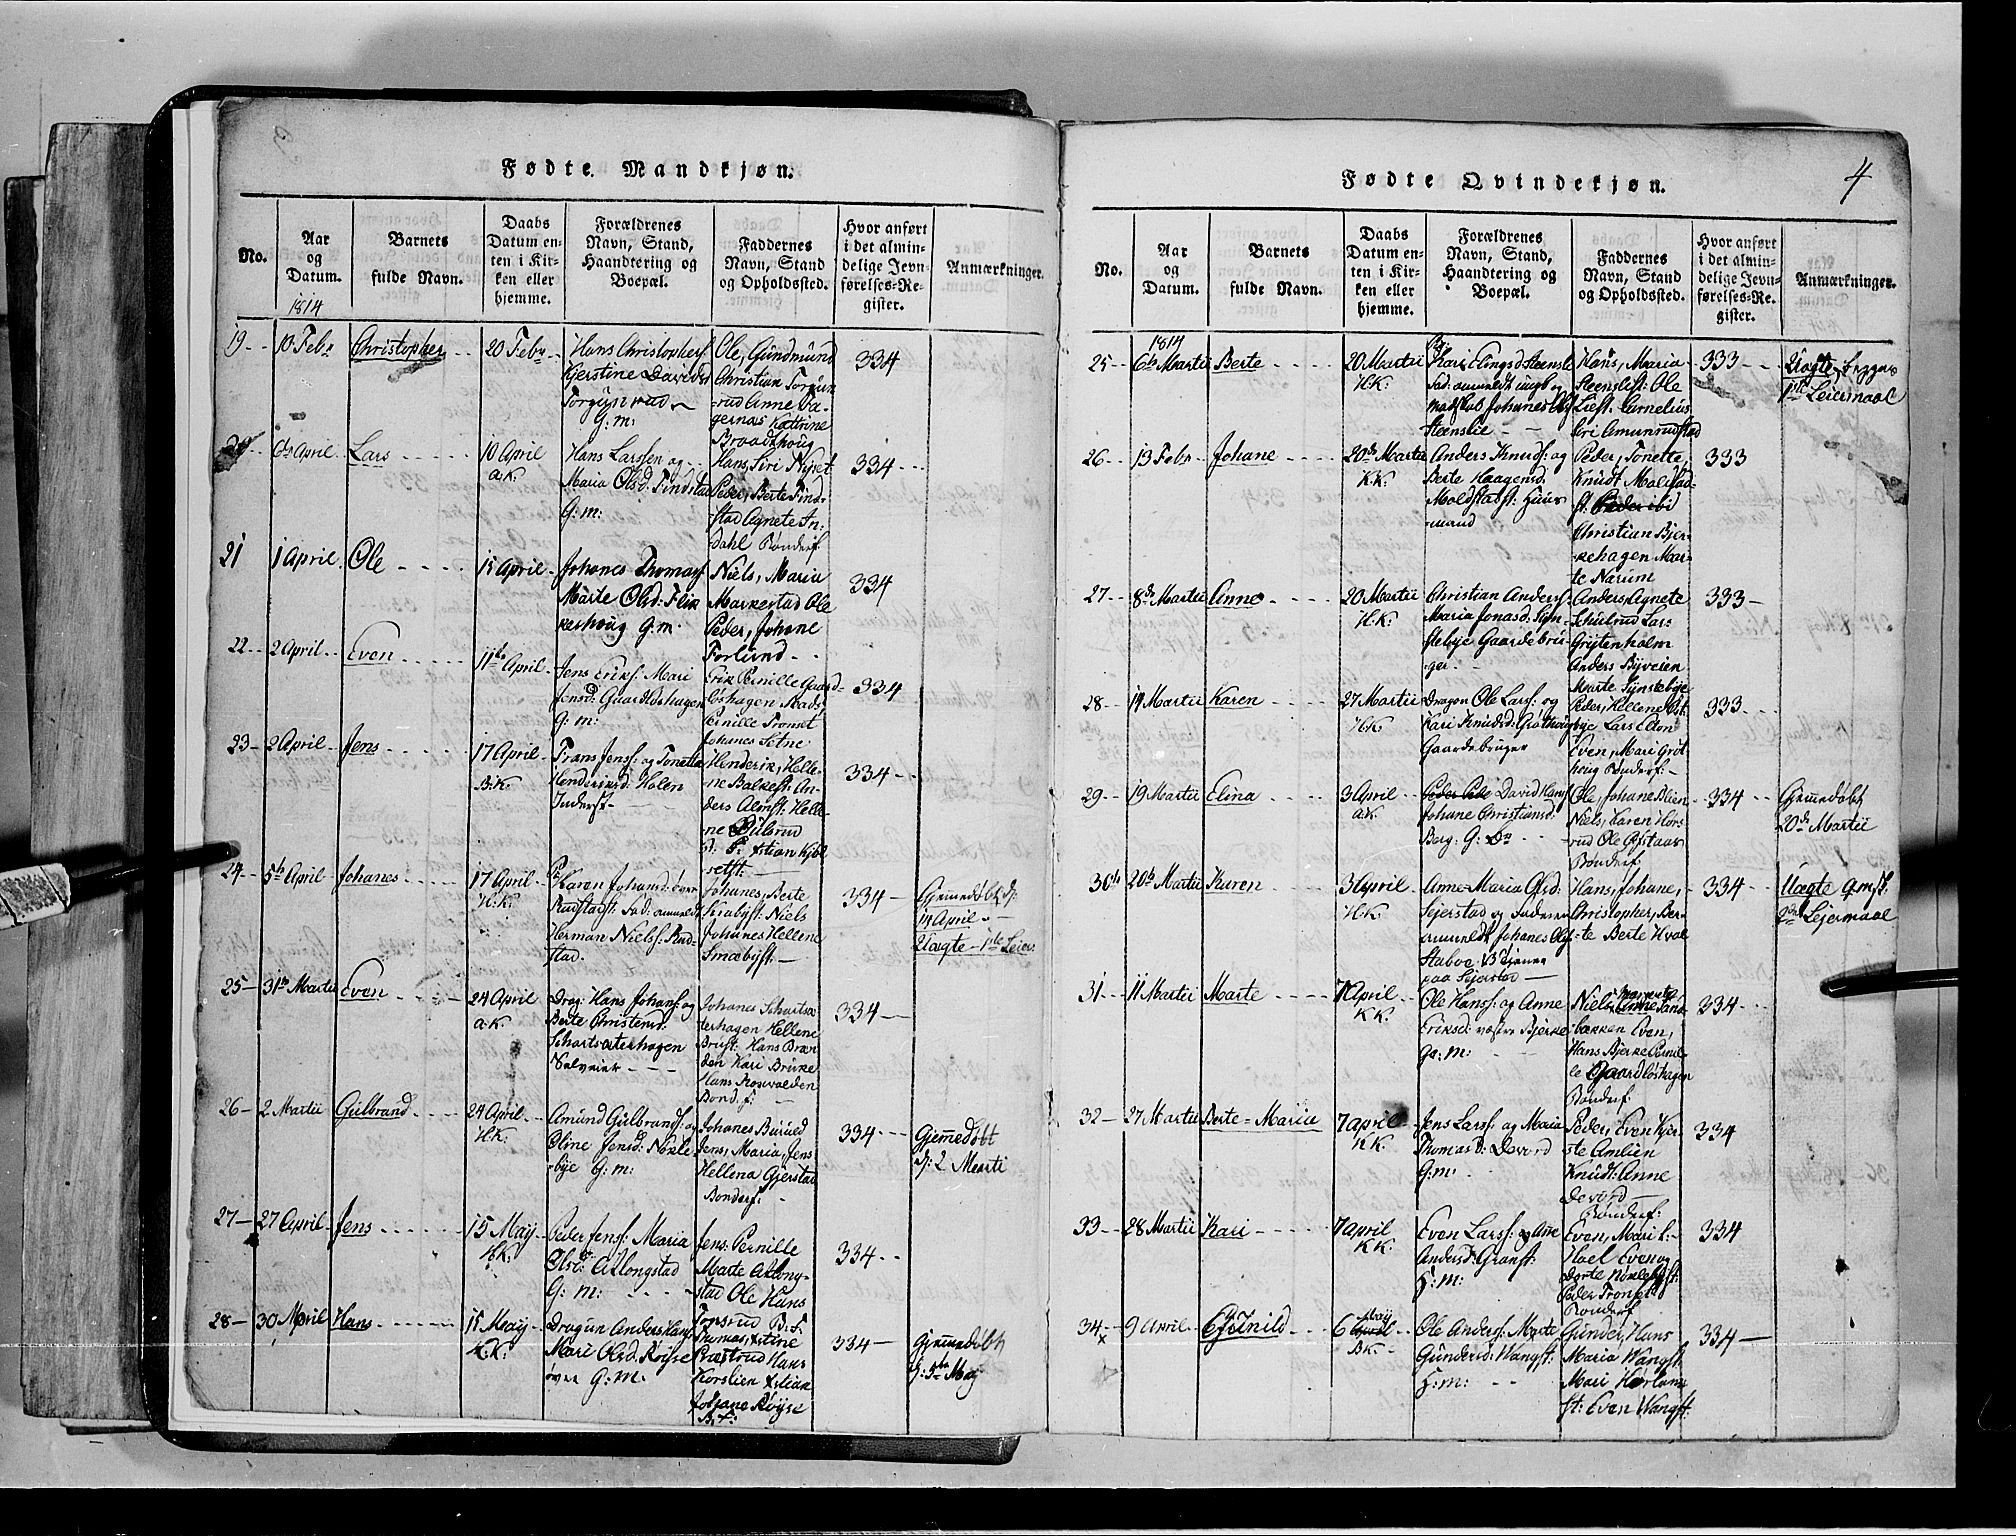 Fødte Mandkjøn.
No.
Aar
og
Datum.
Barnets
fulde Navn.
Daabs
Datum en-
ten i Kir-
ken eller
hjemme.
Forældrenes
Navn, Stand,
Haandtering og
Boepæl.
Faddernes
Navn, Stand
og Opholdssted.
Hvor anført
i det almin-
delige Jevn-
førelses-Re-
gister.
Anmærkninger.
1814
19
10 Febr
Christopher
20 Febr
Hans Christophers:
Kjerstine Davids
G: m:
Ole, Gundmund
Christian Torgun
rud Anne Fa-
gernæs Kattrine
Braadshoug
334
6te April
Lars
10 April
a.K.
Hans Larssen og
Maria Olsd: Findstad
G: m:
Hans, Siri Nyset
Peder, Berte Find-
stad Agnete In-
dahl Bønderf
334
21
1 April
Ole
15 April
Johanes Thomasf
Marte Olsd: Flik
kerhoug G: m.
Niels, Maria
Markestad Ole
Peder, Johane
Forlund
334
22
2 April
Even
11te April
Jens Eriks: Mari
Jensd: Gaardløshagen
G: m:
Erik Pernille Gaard-
løshagen Mads
Pernille Tromst
Johanes Setne
334
23
2 April
Jens
17 April
B:K:
Frans Jens: og Tonette
Henderiksd: Holen
Inderst
Henderik, Helle-
ne Balkest: An-
ders Almst: Helle-
ne
334
24
5te April
Johanes
17 April
H:K:
Karen Johansd: øver
Rudstadst: Fad: anmeldt
Herman Niels: Rud-
stad.
Johanes, Berte
Krabyst: Niels
Johanes Hellene
Smæbyst:
334
Gjemedøbt d:
14 April
Uægte - 1ste Leier:
25
31te Martii
Even
24 April
a.K.
Drag: Hans Johans: og
Berte Christensd:
Schartsæterhagen
Selveier
Johanes Schartsæ
terhagen Hellene
Brust: Hans Bran
den Kari Brukke
Hans Rosvolden
Bond:f:
334
26
2 Martii
Gulbrand
24 April
H:K:
Amund Gulbrands: og
Oline Jensd: Nøkle
bye G: m:
Johanes Buruld
Jens, Maria, Jens
Hellena Gjerstad
Bonderf:
334
Gjemedøbt
d: 2 Marti
27
27 April
Jens
15 Maij
H:K:
Peder Jens: Maria
Olsd: Alstongstad
G: m:
Jens: Pernille
Marte Aslong-
stad Ole Hans
334
28
30 April
Hans
15 Maij
H.K:
Dragun Anders Hans:
Mari Olsd. Røyse
øver G: m.
Thomas, Xstine
Præstrud Hans
Korslien Xstian
Johane Røyse
B: f:
334
Gjemedøbt
d: 5te Maj
Fødte Qvindekjøn.
4
No.
Aar
og
Datum.
Barnets
fulde Navn.
Daabs
Datum en-
ten i Kir-
ken eller
hjemme.
Forældrenes
Navn, Stand,
Haandtering og
Boepæl.
Faddernes
Navn, Stand
og Opholdssted.
Hvor anført
i det almin-
delige Jevn-
førelses-Re-
gister.
Anmærkninger.
1814
25
6te Martii
Berte
20 Martii
H:K:
Kari Elingsd Steenslie
Fad: anmeldt ungk og
Johanes Ols
Steenslie
Hans, Maria
Steenslist: Ole
Liest: Cornelius
Siri Amunrudstad
333
Uægte begges
1ste Leiermaal
26
13 Febr
Johane
20de Martii
K.K.
Anders Knuds: og
Berte Haagensd:
Molstadst: Huus
mand
Peder, Tonette,
Knudt Molstad
st: Peder ibid
Christian Bjer-
kehagen Mar-
te Narum
333
27
8de Martii
Anne
20 Martii
H:K:
Christian Anders:
Maria Jonasd: Syn-
stebye Gaardebru-
ger
Anders, Agnete
Schulrud Lars
Grytenholm
Anders Byveien
Marte Synstebye
333
28
14 Martii
Karen
27 Martii
H:K:
Dragon Ole Lars: og
Kari Knudsd: Gröthoug
Gaardebruger
Peder, Hellene
bye Lars Eldon
Even, Mari Gröt
houg Bønderf:
333
29
19 Martii
Elina
3 April
a.K:
David Hans
Johane Christiansd:
Berg: G: Do
Ole, Johane Blien
Niels, Karen Hørs
rud Ole Ofstaas
Bønderf
334
Gjemedøbt
20de Martii
30te
20te Martii
Karen
3 April
H:K.
Anne-Maria Olsd:
Sejerstad og Faderen
anmeldt Johanes Ols
Staboe. B tjener
paa Sejerstad
Hans, Johane,
Christopher, Ber-
te Berte Hval
334
Uægte
2den Lejermaal
31
11 Martii
Marte
7 April
K K:
Ole Hans: og Anne
Eriksd: næstre Bjerke
G: m:
Niels, Anne Sand
bækken Even,
Hans Bjerke Pernil-
le Gaardløshagen
Bønderf:
334
32
27 Martii
Berte-Maria
7 april
K K.
Jens Lars: og Maria
Thomasd: Devord
G: m.
Peder, Even Kjer-
ste Amlien
Knudt: Anne
Devord
Bønderf:
334
33
28 Martii
Kari
7 april
K K:
Even Lars: og Anne
Andersd: Granst:
H: m:
Even, Mari L:
Hoel Even og
Dorte Nøklebyst:
Peder Tromst
Bønderf
334
34
x
9 April
Gunild
6 Maij
B K
Ole Anders: Marte
Gundersd: Wangst:
H: m:
Gunder, Hans
Maria Wangst
Mari Hørlam
st: Even Wangst:
334